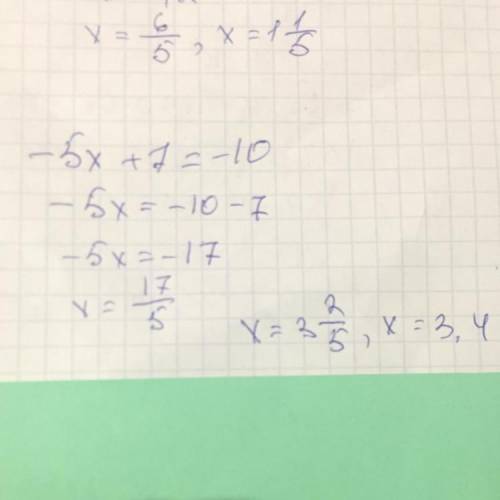 x = 6/5, x = 1 1/5
-5x + 7 = -10
-5x = -10 - 7
-5x = -17
x = 17/5
x = 3 2/5, x = 3,4